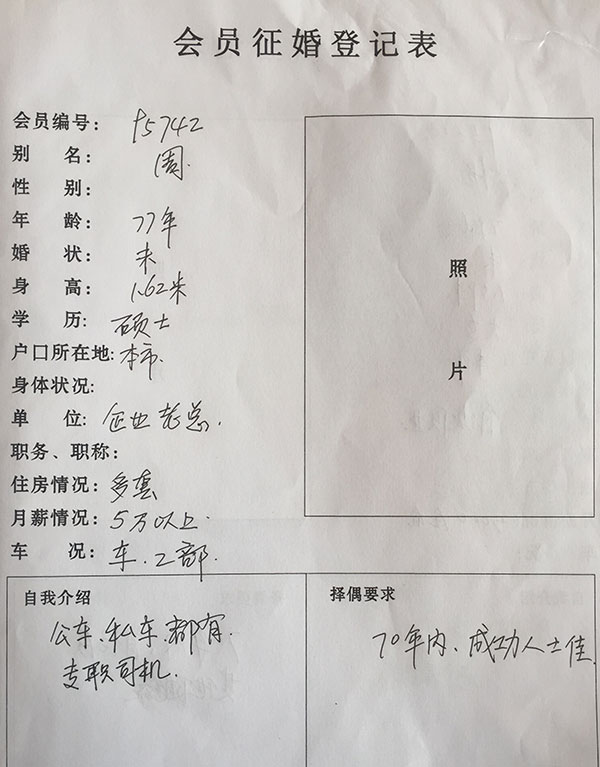 会员征婚登记表
会员编号： 95742
别名： 周.
性别：
年龄： 77年
婚状： 未
身高： 1.62米
学历： 硕士
户口所在地: 本市.
身体状况:
单位: 企业老总.
职务、职称:
住房情况: 多套
月薪情况: 5万以上.
车况: 车.2部.
照
片
自我介绍
公车.私车.都有.
专职司机.
择偶要求
70年内、成功人士佳.